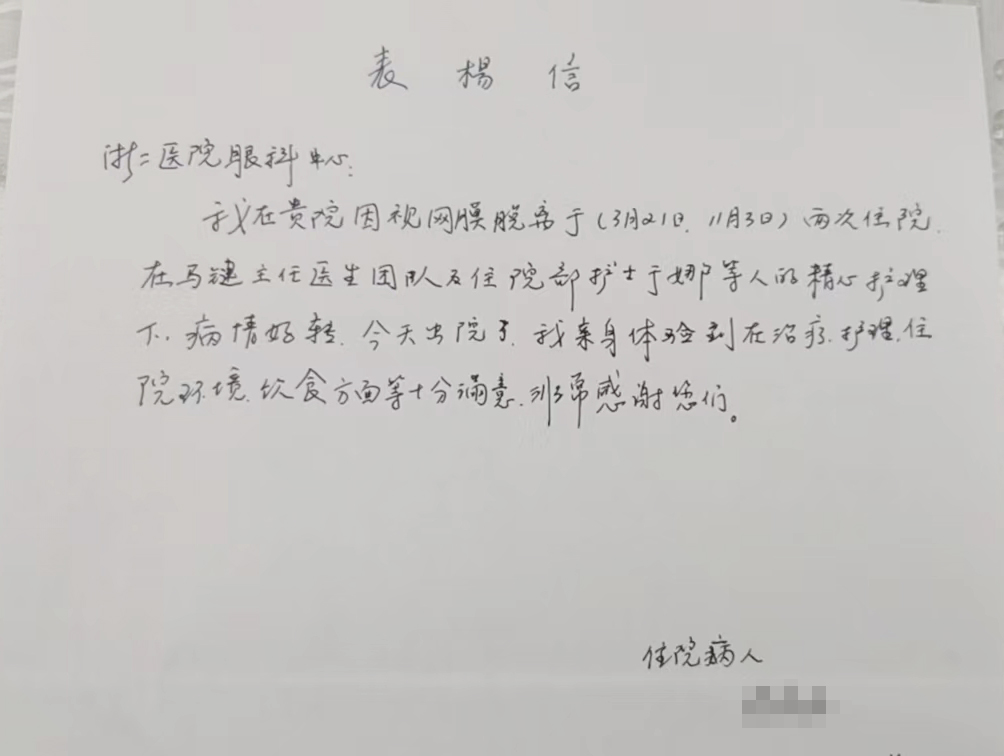 表 楊 信
浙二医院眼科中心:
我在贵院因视网膜脱离于(3月21日、11月3日)两次住院.
在马建主任医生团队及住院部护士于娜等人的精心护理
下.病情好转.今天出院了.我亲身体验到在治疗.护理.住
院环境.饮食方面等十分满意.非常感谢您们。
住院病人